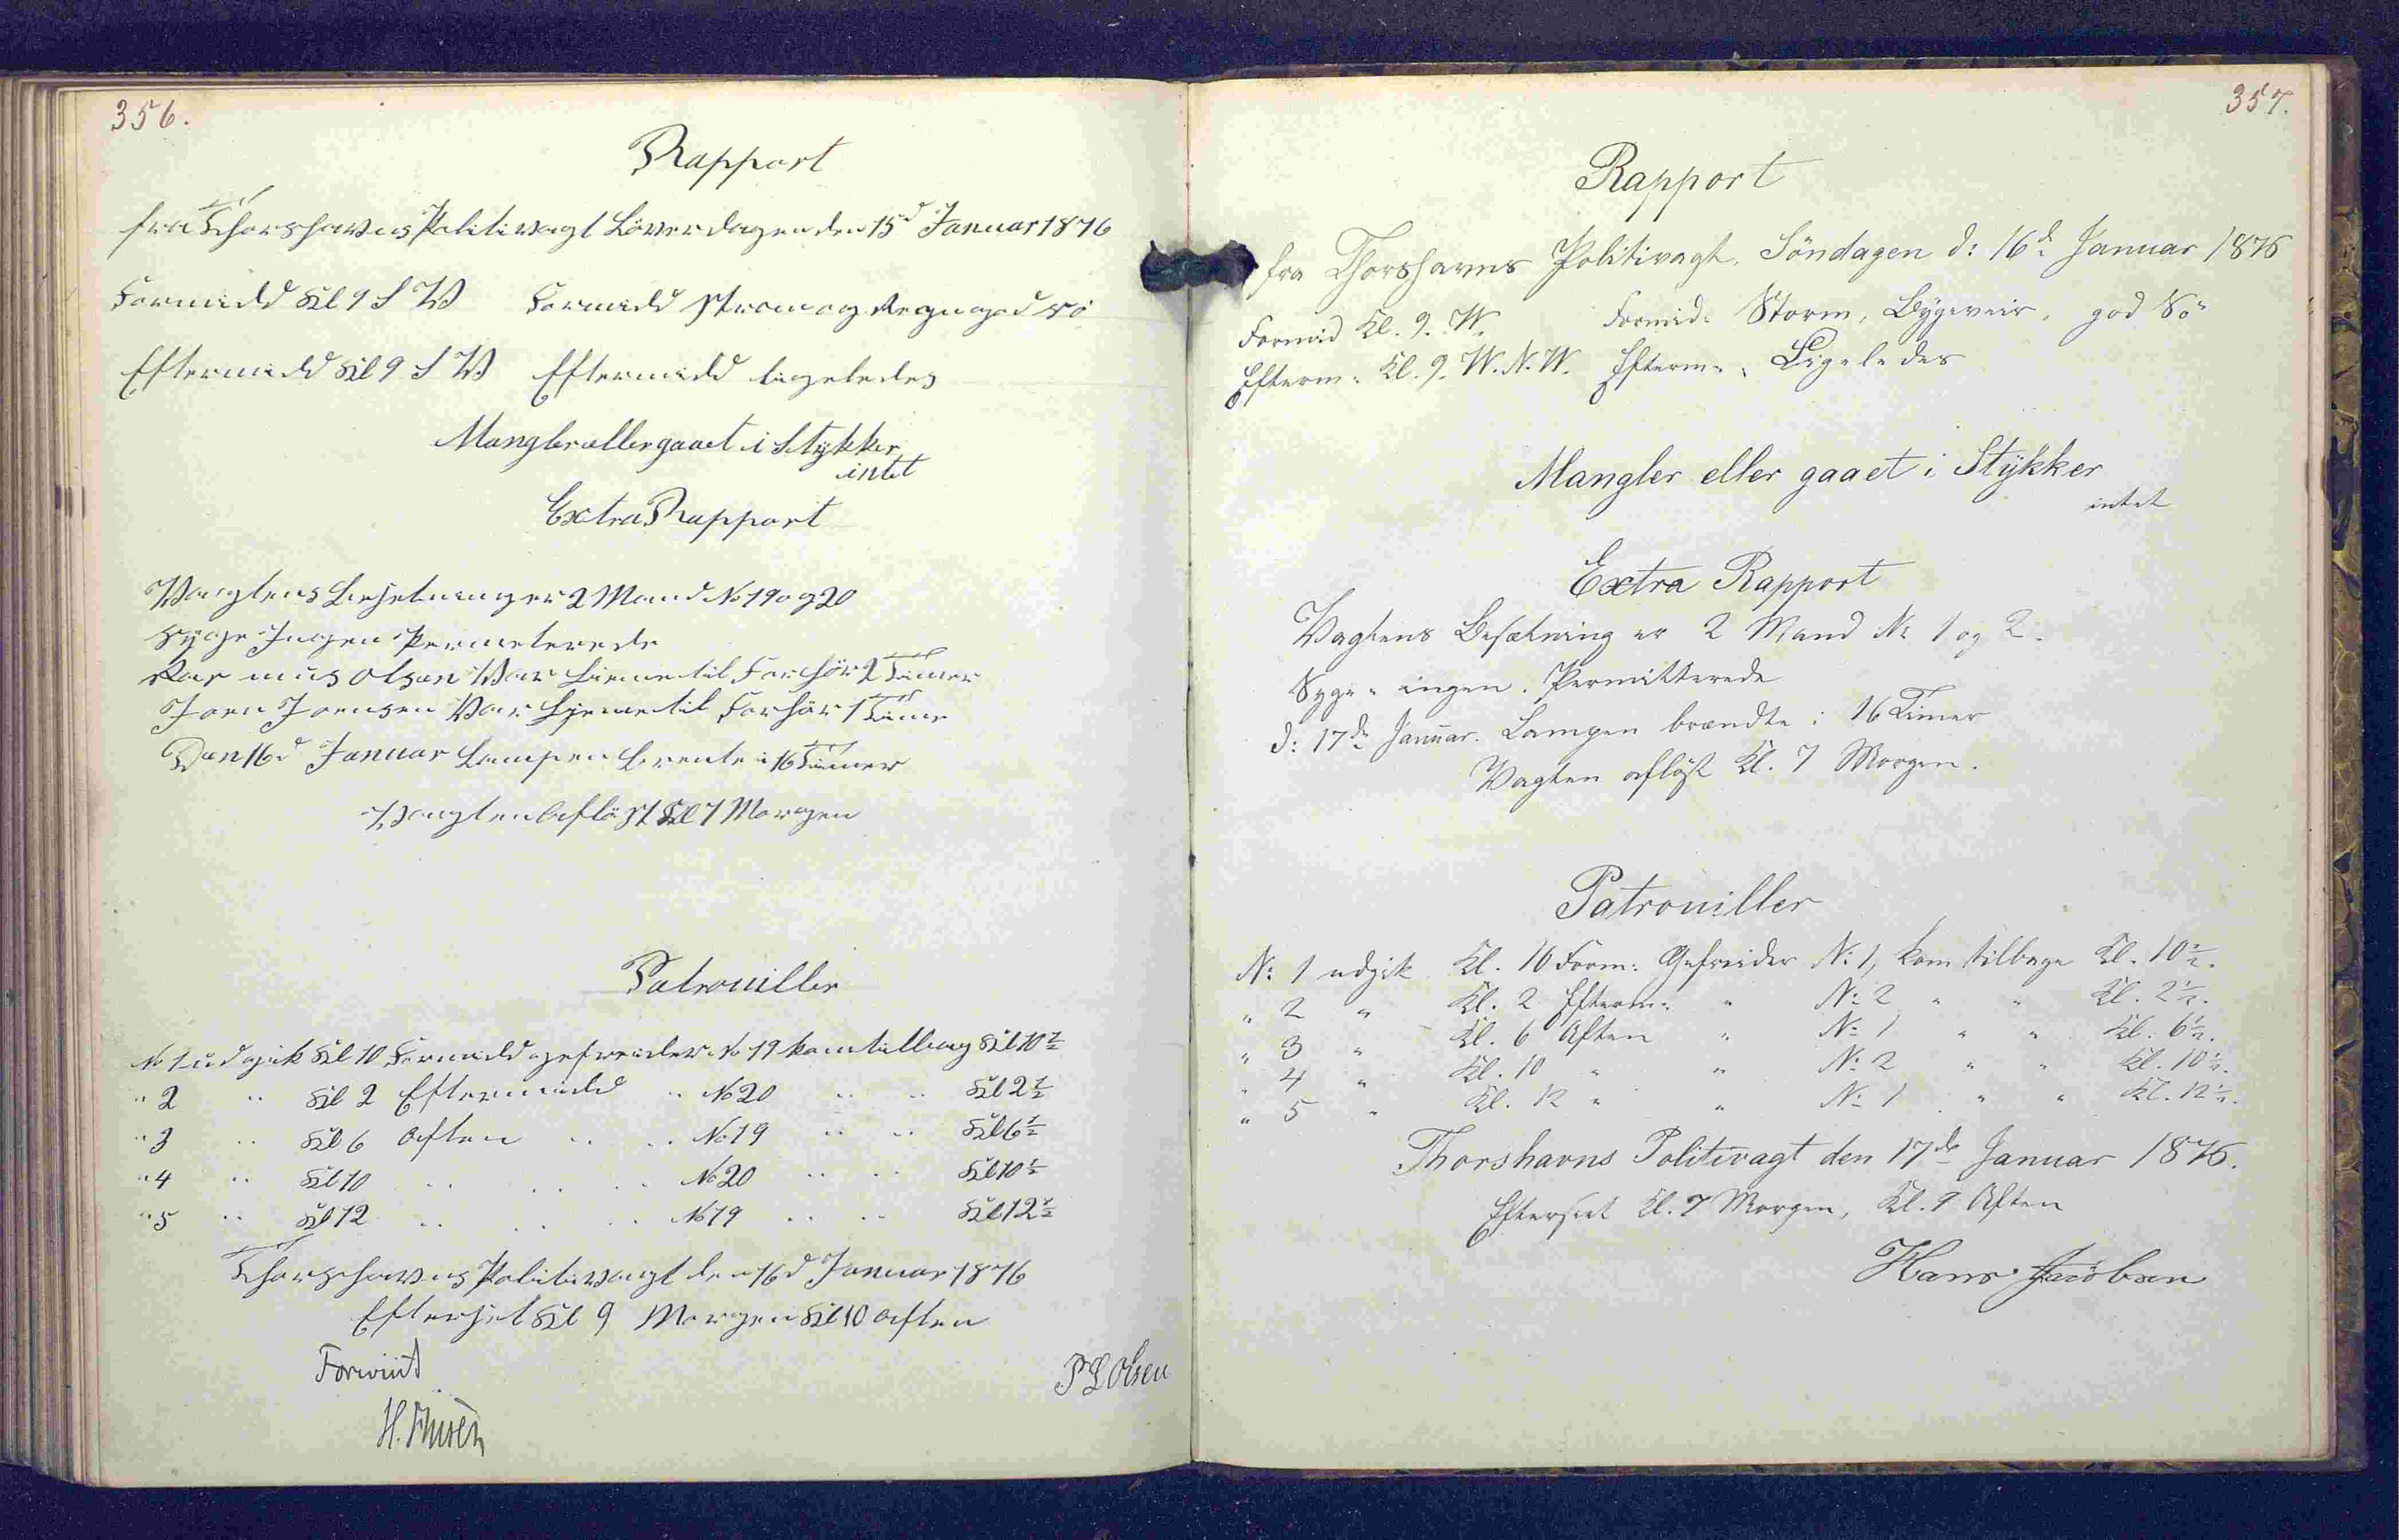 356.
Rapport
fra Thorshavns Politivagt Löverdagen den 15d Januar 1876
Formidd Kl 9 S W Formidd Strom og Regn god Sö
Eftermidd Kl 9 S W Eftermidd ligeledes
Mangler eller gaaet i Stykker
intet
Extra Rapport
Vagtens Besetning er 2 Mand No 19 og 20
Syge Ingen Permeterede
Rasmus Olsen Var hieme til Forhör 2 Timer
Joen Joensen Var hjeme til Forhör 1 Time
Den 16d Januar Lampen brente i 16 Timer
Vagten Aflöst Kl 7 Morgen
Patrouiller
No 1 udgik Kl 10 Formidd gefreider No 19 kom tilbag Kl 10 1/2
" 2 " Kl 2 Eftermidd " No 20 " " Kl 2 1/2
" 3 " Kl 6 Aften " " No 19 " " Kl 6 1/2
" 4 " Kl 10 " " " No 20 " " Kl 10 1/2
" 5 " Kl 12 " " " No 19 " " Kl 12 1/2
Thorshavns Politivagt den 16d Januar 1876
Efterset Kl 9 Morgen Kl 10 Aften
Forevist
P L Olsen
357.
Rapport
fra Thorshavns Politivagt, Söndagen d: 16de Januar 1876
Formid Kl. 9. W. Formid: Storm, Bygeveir, god Sö
Efterm: Kl. 9. W.N.W. Efterm: Ligeledes
Mangler eller gaaet i Stykker
intet
Extra Rapport
Vagtens Besætning er 2 Mand No 1 og 2.
Syge: ingen. Permitterede
d: 17de Januar. Lampen brændte i 16 Timer
Vagten aflöst Kl. 7 Morgen.
Patrouiller
No 1 udgik Kl. 10 Form: Gefreider No 1, kom tilbage Kl. 10 1/2.
" 2 " Kl. 2 Efterm: " No 2 " " Kl. 2 1/2.
" 3 " Kl. 6 Aften " No 1 " " Kl. 6 1/2.
" 4 " Kl. 10 " " No 2 " " Kl. 10 1/2.
" 5 " Kl. 12 " " No 1 " " Kl. 12 1/2.
Thorshavns Politivagt den 17de Januar 1876.
Efterseet Kl. 7 Morgen, Kl. 9 Aften
Hans Jacobsen